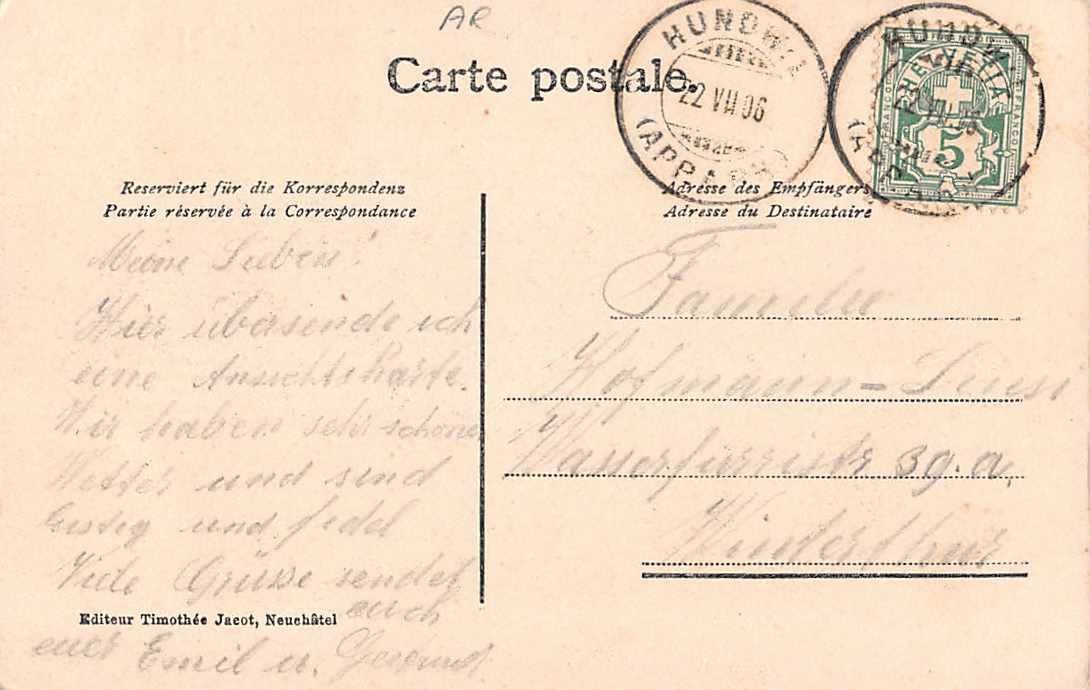 AR
Carte postale.
HUNDWIL
22 VII 06
(APPENZ
HUNDWIL
HELVETIA
FRANCO
5
Reserviert für die Korrespondenz
Partie réservée à la Correspondance
Adresse des Empfängers
Adresse du Destinataire
Meine Lieben!
Hier übersende ich
eine Ansichtskarte.
Wir haben sehr schönes
Wetter und sind
lustig und fidel
Viele Grüsse sendet
euch
euer Emil u.
Familie
Hofmann-
39.a.
Winterthur
Editeur Timothée Jacot, Neuchâtel